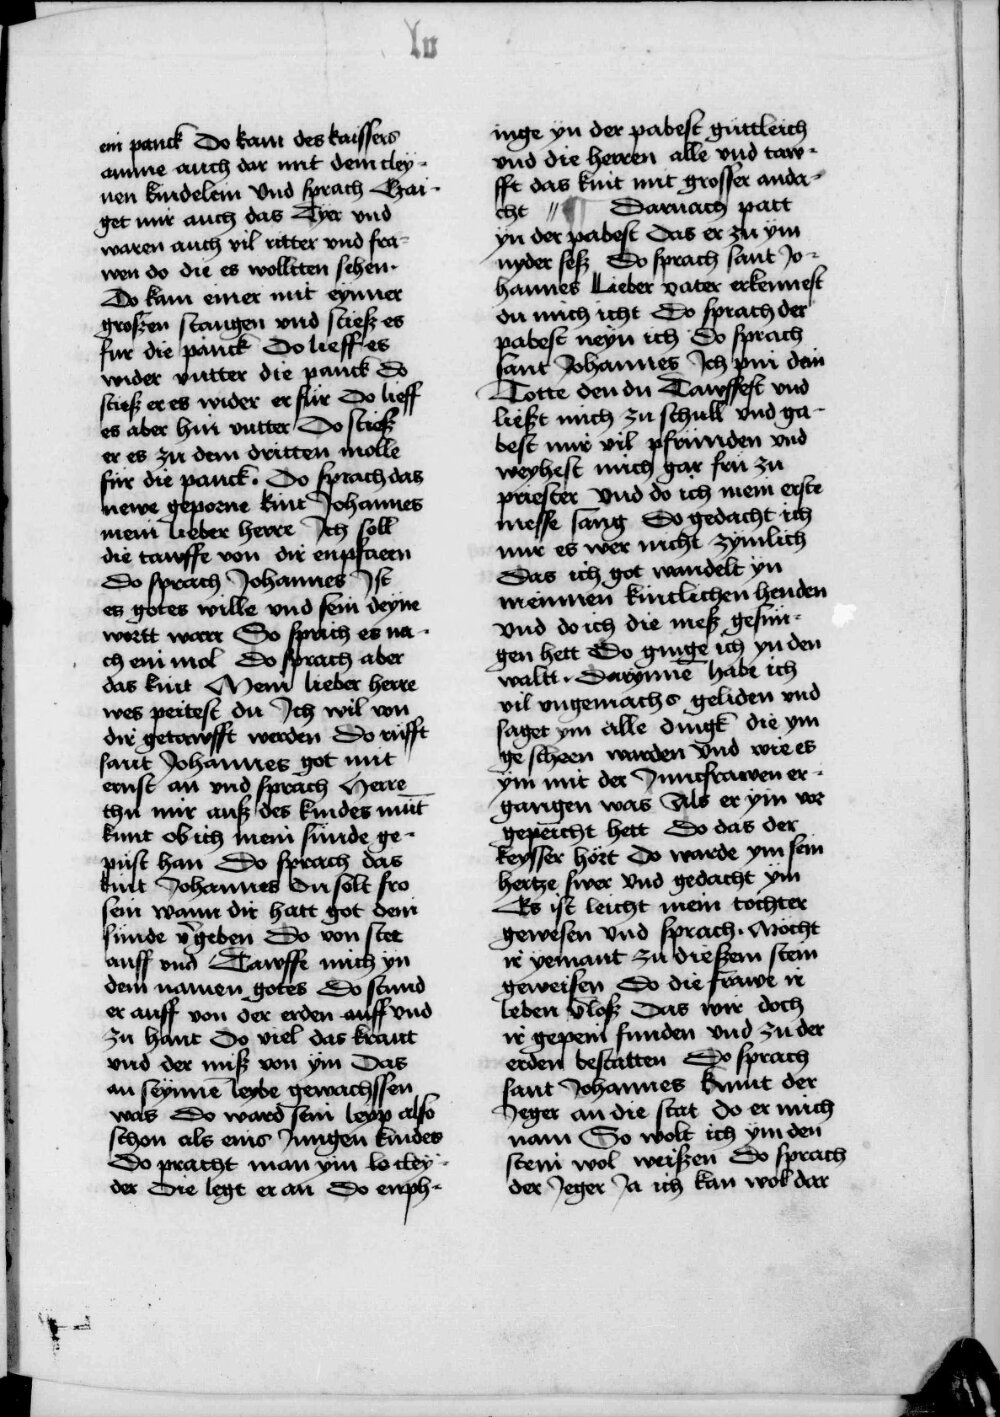 lv
ein panck Do kam des kaissers
amme auch dar mit dem cley-
nen kindelein Vnd sprach Czai-
get mir auch das Tyer vnd
waren auch vil ritter vnd fra-
wen do die es wolltten sehen.
Do kam einer mit eynner
großen stangen vnd stieß es
fur die panck Do lieff es
wider vntter die panck do
stieß er es wider er für Do lieff
es aber hin vntter Do stieß
er es zu dem dritten molle
für die panck. Do sprach das
newe geporne kint Johannes
mein lieber herre Ich soll
die tawffe von dir enpfaen
Do sprach Johannes Ist
es gotes wille vnd sein deyne
wortt warr So sprich es na-
ch ein mol Do sprach aber
das kint Mein lieber herre
wes peitest du Ich wil von
dir getawfft werden Do rüfft
sant Johannes got mit
ernst an vnd sprach Herre
thu mir auß des kindes mūt
kunt ob ich mein sünde ge-
püst han Do sprach das
kint Johannes du solt fro
sein wann dir hatt got dein
sünde v̄geben Do von stee
auff vnd Tawffe mich yn
dem namen gotes Do stund
er auff von der erden auff vnd
zu hant Do viel das kraut
vnd der miß von ym Das
an seynnē leybe gewachssen
was Do ward sein leyp also
schon als eins Jungen kindes
Do pracht man ym do cley-
der Die legt er an Do enph-
inge yn der pabest güttleich
vnd die herren alle vnd taw-
fft das kint mit grosser anda-
cht // ¶ Darnach patt
yn der pabest Das er zu ym
nyder seß Do sprach sant Jo-
hannes Lieber vater erkennest
du mich icht Do sprach der
pabest neyn ich Do sprach
sant Johannes Ich pin dein
Totte den du Tawffest vnd
ließt mich zu schull vnd ga-
best mir vil pfrunden vnd
weyhest mich gar fru zu
priester Vnd do ich mein erste
messe sang Do gedacht ich
mir es wer nicht zymlich
Das ich got wandelt yn
meinnen kintlichen henden
Vnd do ich die meß gesun-
gen hett Do ginge ich yn den
waltt. Darynnē habe ich
vil vngemachs geliden vnd
saget ym alle dingk die ym
ge scheen warden Vnd wie es
ym mit der Junckfrawen er-
gangen was Als er ym vor
gepeicht hett Do das der
keysser hört Do warde ym sein
hertze swer Vnd gedacht ym
Es ist leicht mein tochter
gewesen Vnd sprach. Möcht
ir yemant zu dießem stein
geweisen Do die frawe ir
leben v̄loß Das wir doch
ir gepein funden vnd zu der
erden bestatten Do sprach
sant Johannes kumt der
Jeger an die stat do er mich
nam So wolt ich ym den
stein wol weißen Do sprach
der Jeger Ja ich kan wol dar